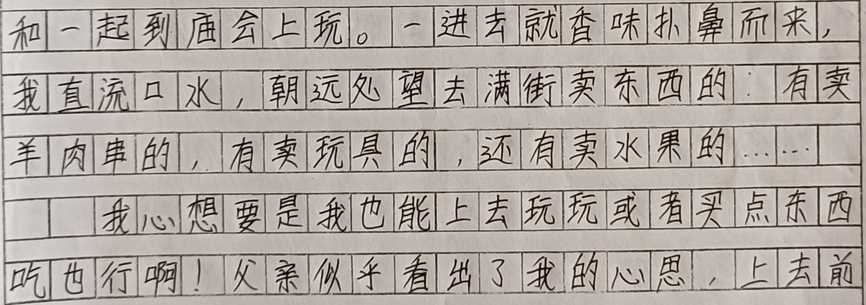 和一起到庙会上玩。一进去就香味扑鼻而来,
我直流口水,朝远处望去满街卖东西的:有卖
羊肉串的,有卖玩具的,还有卖水果的……
我心想要是我也能上去玩玩或者买点东西
吃也行啊!父亲似乎看出了我的心思,上去前